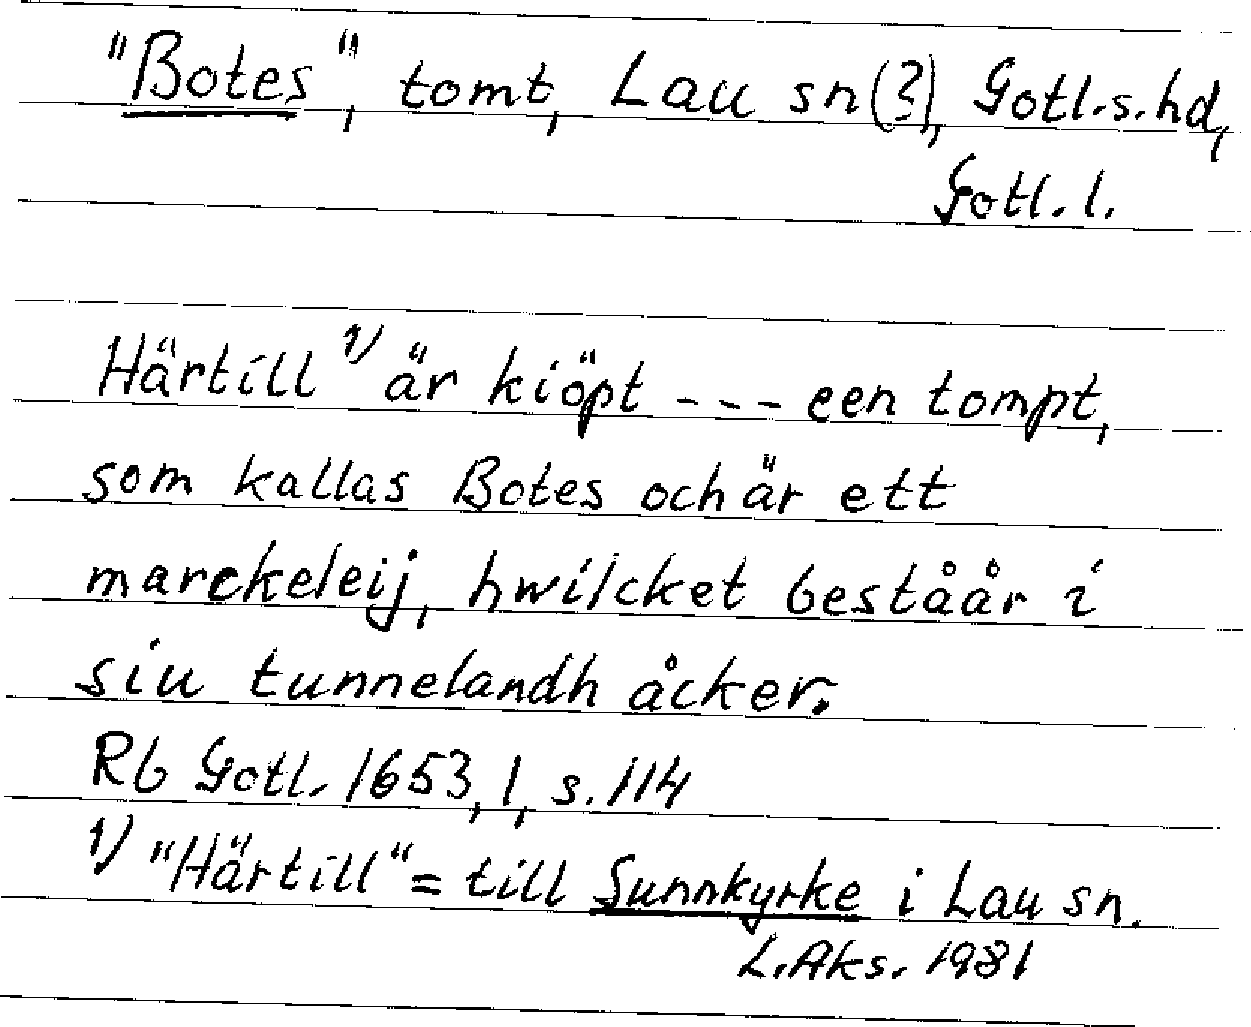 "Botes", tomt, Lau sn(?), Gotl.s.hd,
Gotl. l.
Härtill 1) är kiöpt --- een tompt,
som kallas Botes och är ett
marckeleij, hwilcket beståår i
siu tunnelandh åcker.
Rb Gotl. 1653, 1, s. 114
1) "Härtill" = till Sunnkyrke i Lau sn.
L. Aks. 1981